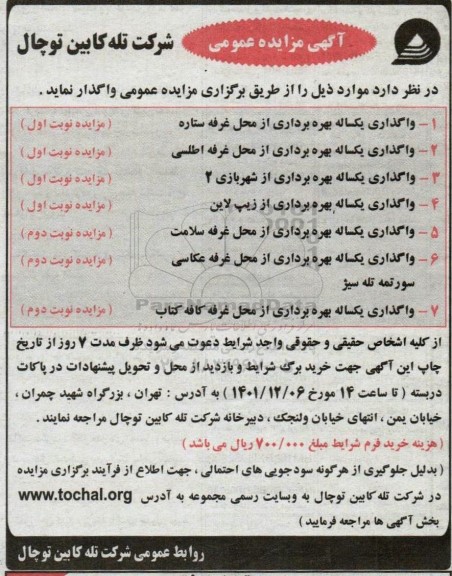 آگهی مزایده عمومی
شرکت تله کابین توچال
در نظر دارد موارد ذیل را از طریق برگزاری مزایده عمومی واگذار نماید .
۱ - واگذاری یکساله بهره برداری از محل غرفه ستاره ( مزایده نوبت اول )
۲ - واگذاری یکساله بهره برداری از محل غرفه اطلسی ( مزایده نوبت اول )
۳ - واگذاری یکساله بهره برداری از شهربازی ۲ ( مزایده نوبت اول )
۴ - واگذاری یکساله بهره برداری از زیپ لاین ( مزایده نوبت اول )
۵ - واگذاری یکساله بهره برداری از محل غرفه سلامت ( مزایده نوبت دوم )
۶ - واگذاری یکساله بهره برداری از محل غرفه عکاسی ( مزایده نوبت دوم )
سورتمه تله سیژ
ParsNamadData
۷ - واگذاری یکساله بهره برداری از محل غرفه کافه کتاب ( مزایده نوبت دوم )
از کلیه اشخاص حقیقی و حقوقی واجد شرایط دعوت می شود ظرف مدت ۷ روز از تاریخ
چاپ این آگهی جهت خرید برگ شرایط و بازدید از محل و تحویل پیشنهادات در پاکات
دربسته ( تا ساعت ۱۴ مورخ ۱۴۰۱/۱۲/۰۶ ) به آدرس : تهران ، بزرگراه شهید چمران ،
خیابان یمن ، انتهای خیابان ولنجک ، دبیرخانه شرکت تله کابین توچال مراجعه نمایند .
( هزینه خرید فرم شرایط مبلغ ۷۰۰/۰۰۰ ریال می باشد )
( بدلیل جلوگیری از هرگونه سودجویی های احتمالی ، جهت اطلاع از فرآیند برگزاری مزایده
در شرکت تله کابین توچال به وبسایت رسمی مجموعه به آدرس www.tochal.org
بخش آگهی ها مراجعه فرمایید )
روابط عمومی شرکت تله کابین توچال